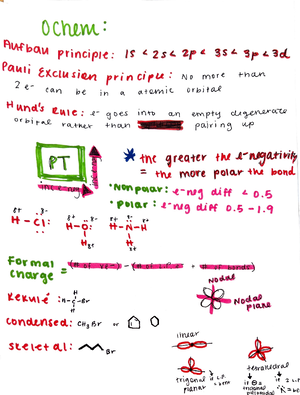 Ochem:
Aufbau principle: 1s < 2s < 2p < 3s < 3p < 3d
Pauli Exclusion principle: No more than
2 e⁻ can be in a atomic orbital
Hund's Rule: e⁻ goes into an empty degenerate
orbital rather than pairing up
PT
the greater the e⁻negativity
= the more polar the bond
• Nonpolar: e⁻neg diff < 0.5
• Polar: e⁻neg diff 0.5 - 1.9
δ+ δ-
H-Cl:
δ+ δ-
H-O:
H
δ+
δ+ δ- δ+
H-N-H
H
δ+
Formal
charge =
Nodal
Nodal
plane
Kekulé:
H
H-C-Br
H
condensed: CH₃Br or
skeletal: Br
linear
trigonal
planar
tetrahedral